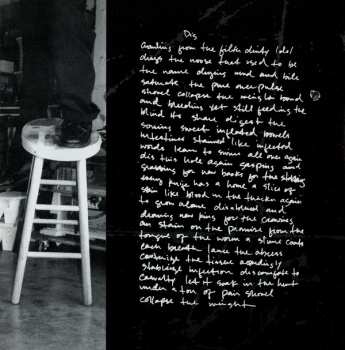 Dis
crawling from the filth dirty idol
drags the noose that used to be
the name dragging mud and bile
saturate the pure over pulse
shovel collapse the weight bound
and bleeding yet still feeding the
blind its share digest the
sewing sweet inflated bowels
intestines stained like infected
words learn to swim all over again
dis this hole again gasping and
grabbing for new hooks for the
prize has a home a slice of
skin like blood in the thicker again
to grow alone disabused and
drawing new ring for the cravings
an stain on the premise from the
tongue of the worm a slime coats
each breath lance the abscess
cauterize the tissue accordingly
stabilize infection discomfort to
casualty let it soak in the heat
under a ton of pain shovel
collapse the weight